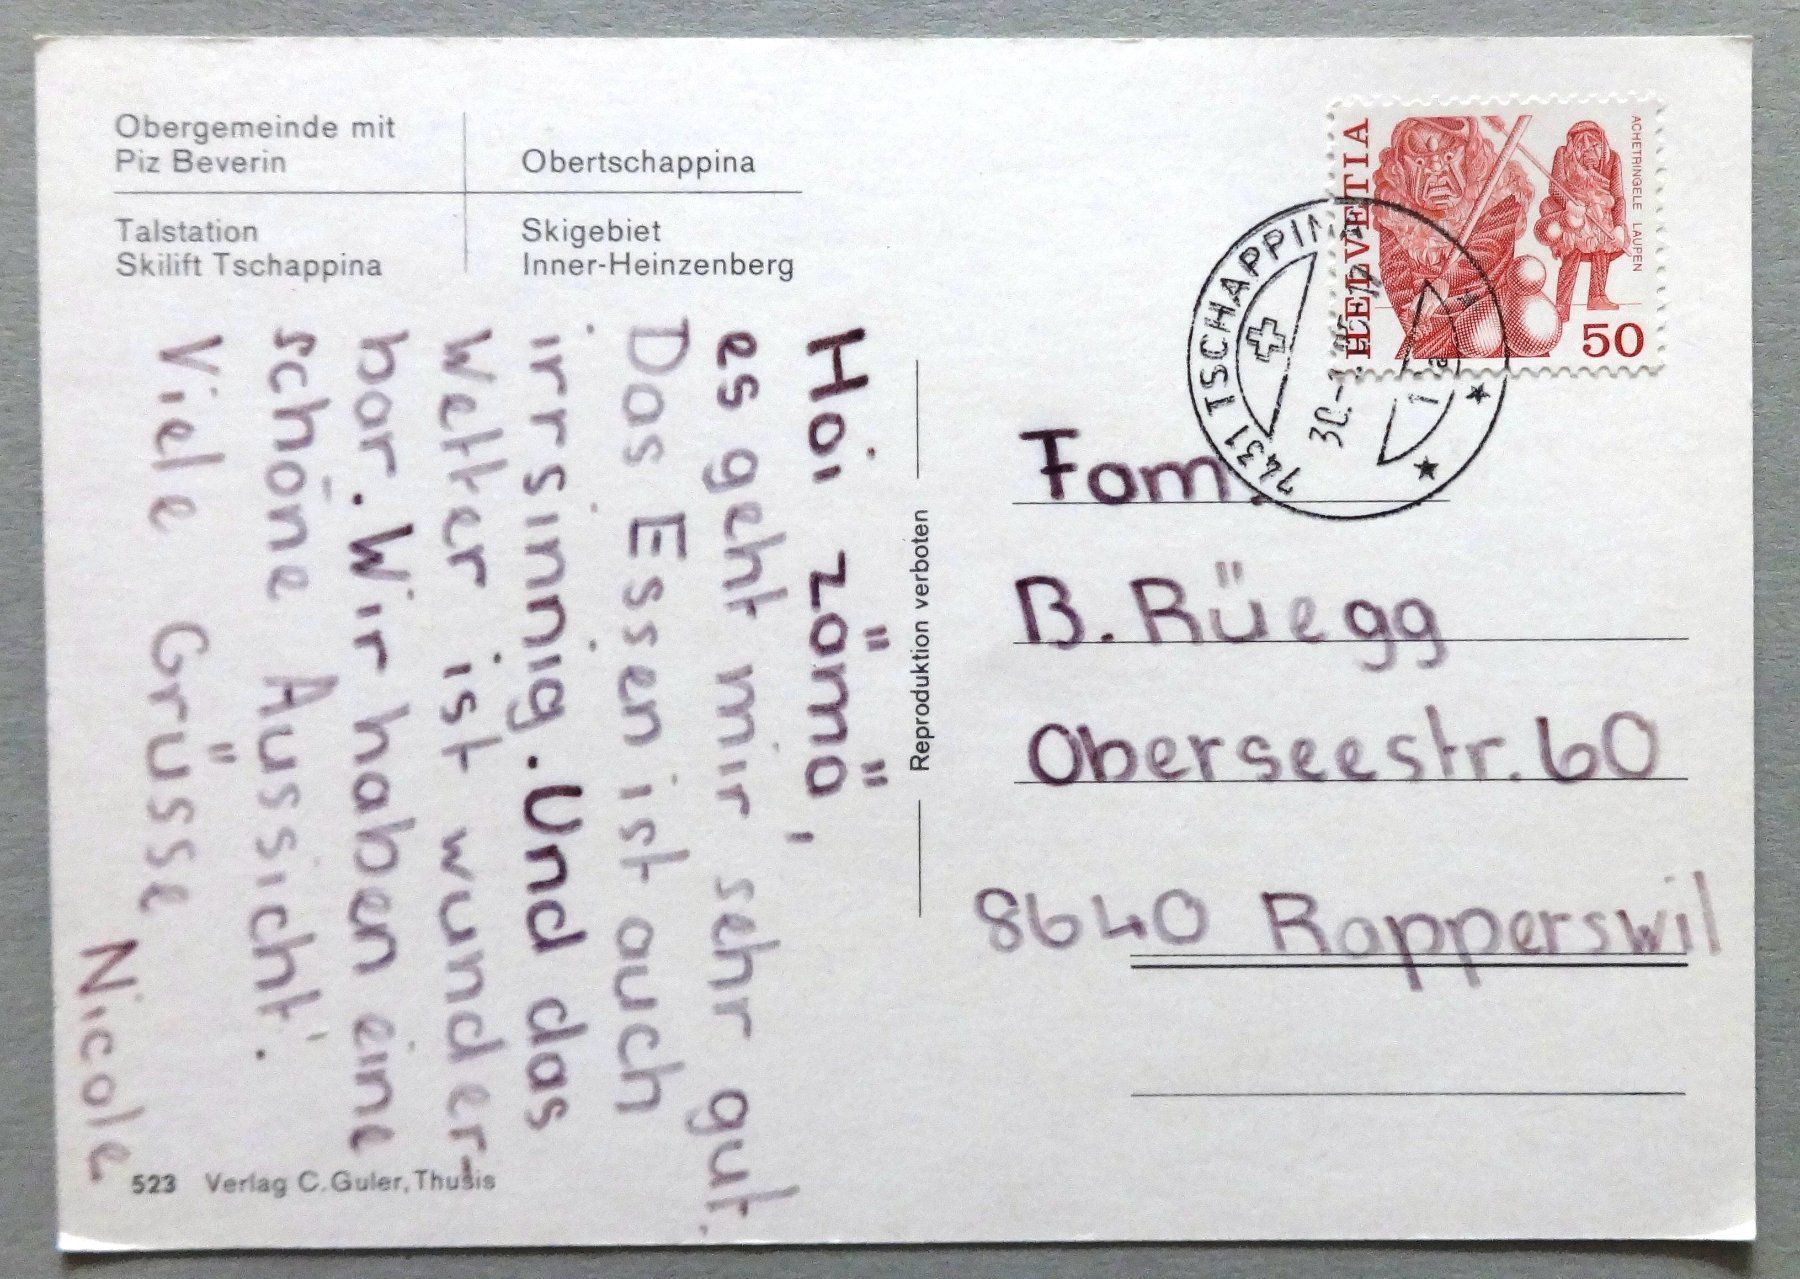 Obergemeinde mit
Piz Beverin
Obertschappina
Talstation
Skilift Tschappina
Skigebiet
Inner-Heinzenberg
Hoi zömä,
es geht mir sehr gut.
Das Essen ist auch
irrsinnig. Und das
Wetter ist wunder-
bar. Wir haben eine
schöne Aussicht.
Viele Grüsse
Nicole
523 Verlag C. Guler, Thusis
Reproduktion verboten
HELVETIA
ACHETRINGELE LAUPEN
50
7431 TSCHAPPINA
Fam.
B. Rüegg
Oberseestr. 60
8640 Rapperswil